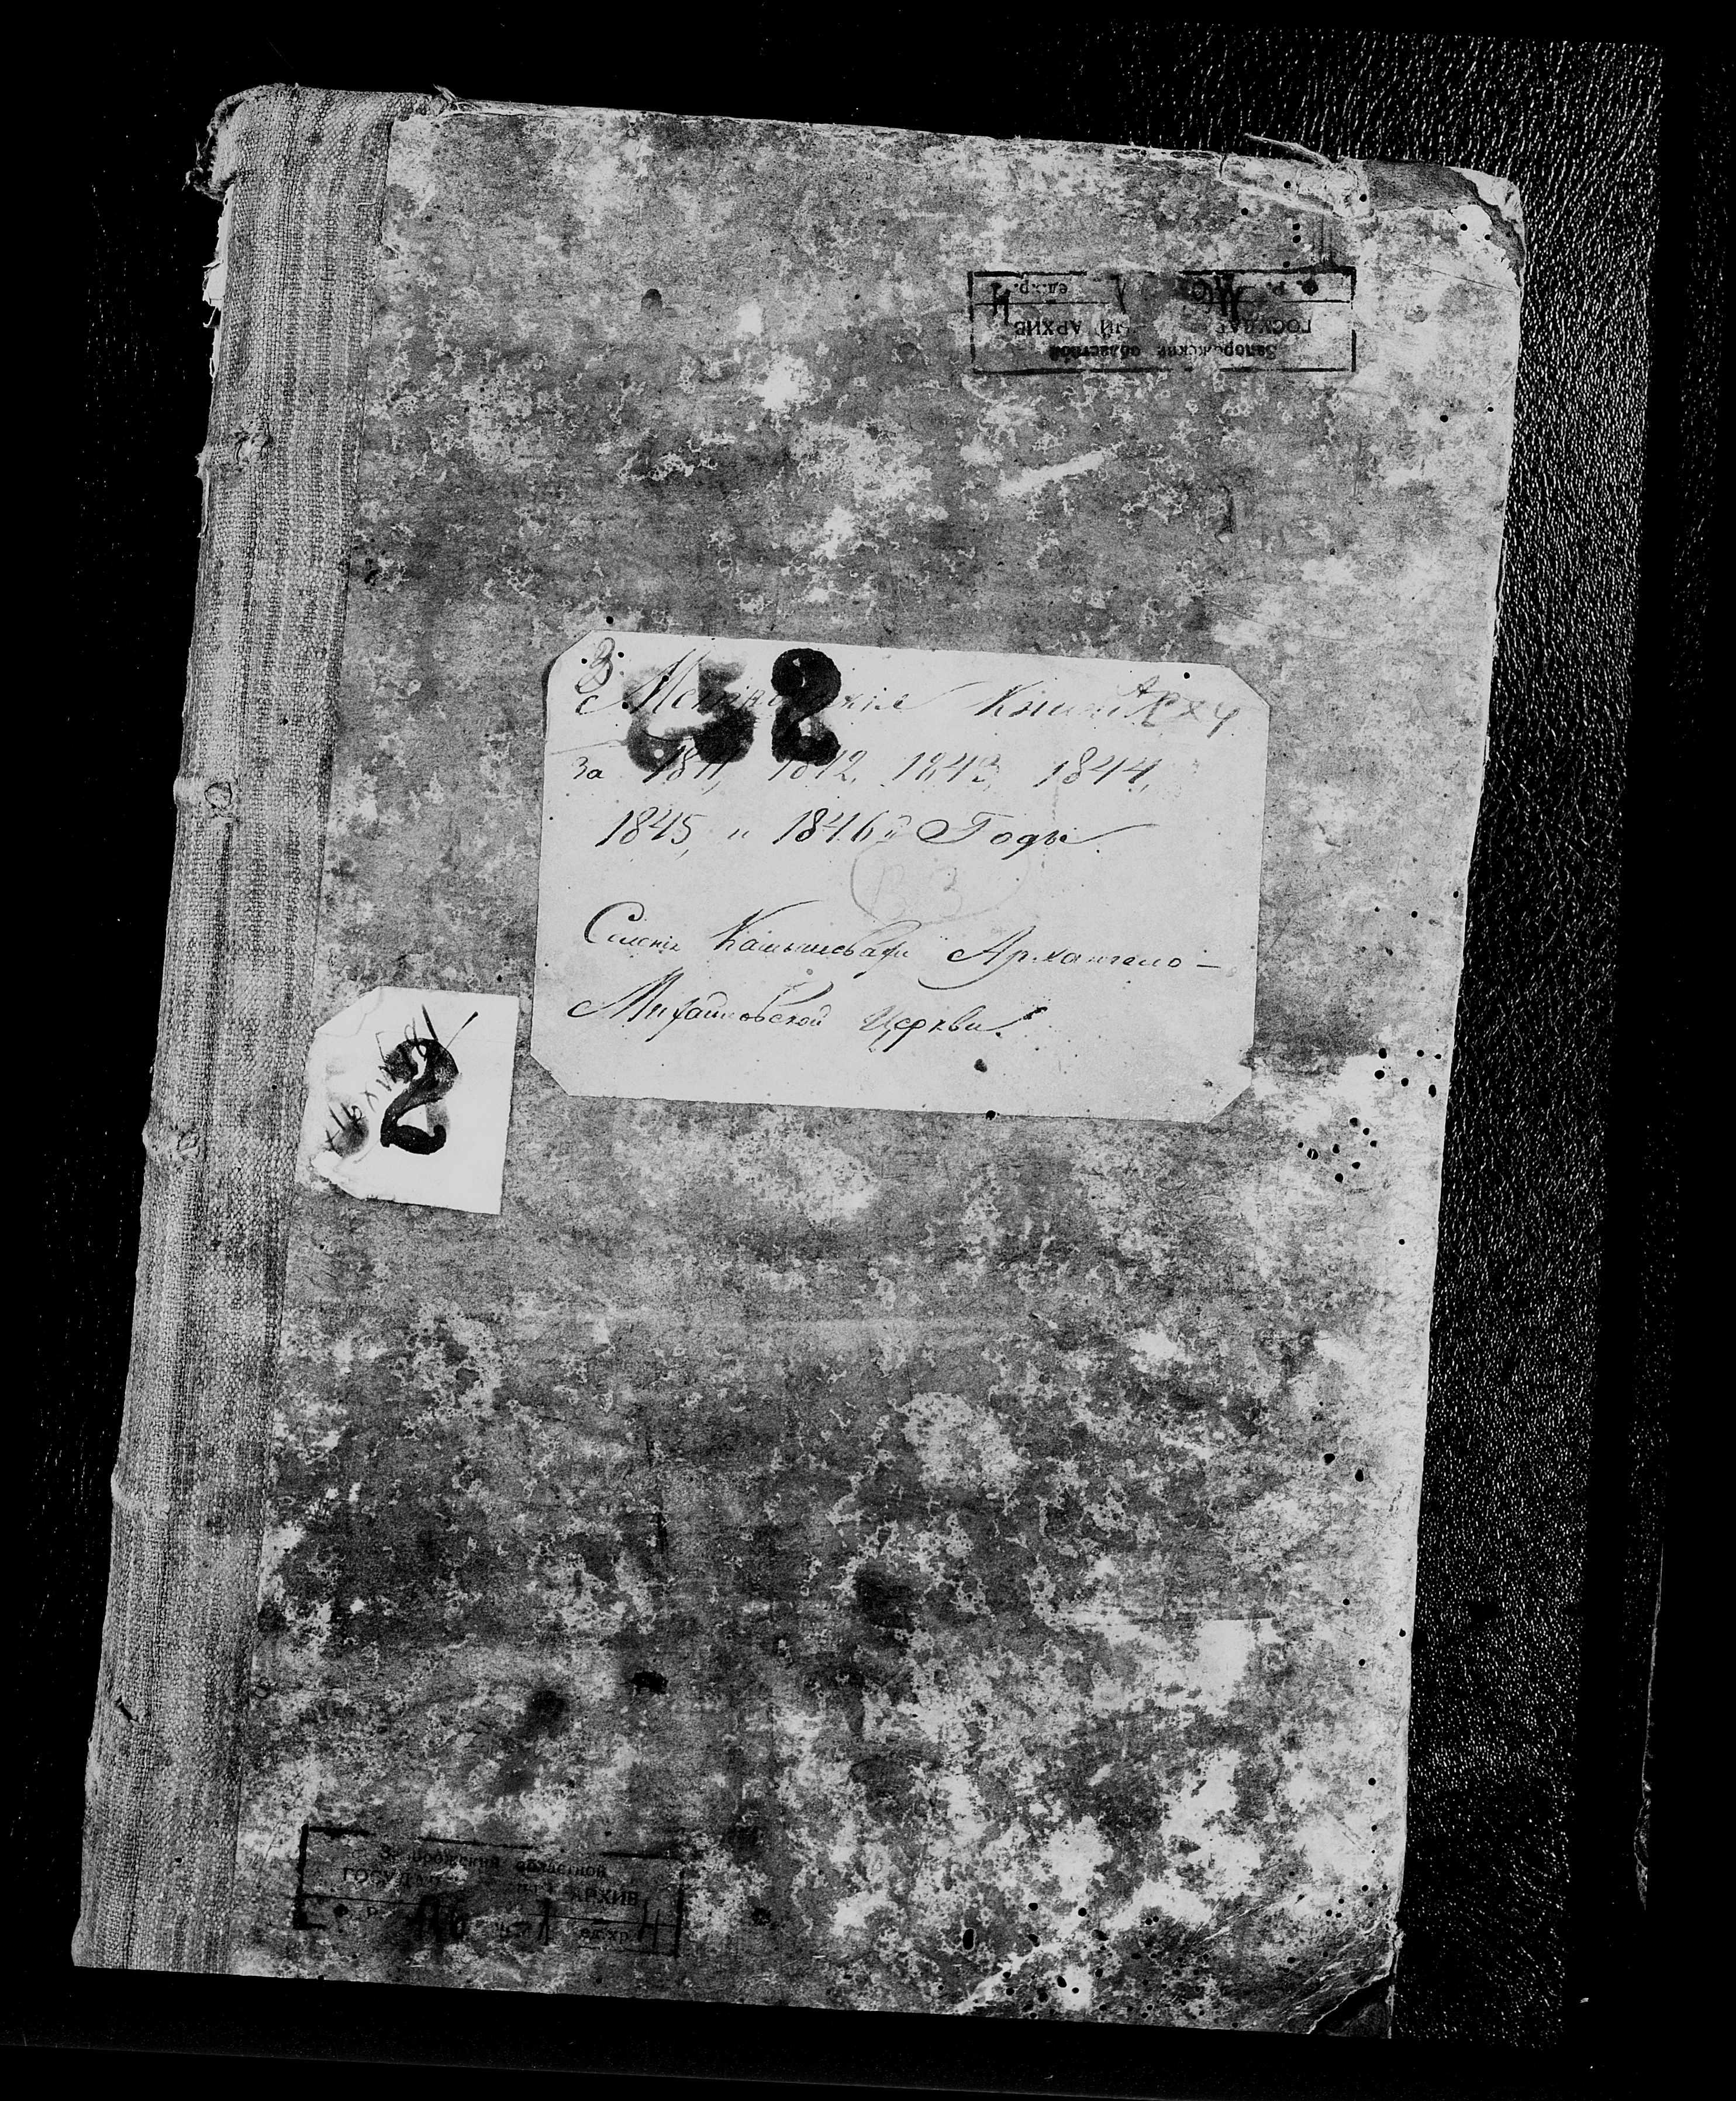 Запорожский областной
ГОСУДАР ЫЙ АРХИВ
ед.хр. 4
3
2
Метрическія Книги
За 1841, 1842, 1843, 1844,
1845, и 1846й Годы.
Селенія Камышевахи Архангело-
Михайловской Церкви.
2
Запорожский областной
ГОСУДАР АРХИВ
Ф. Р. 1 ед.хр. 4